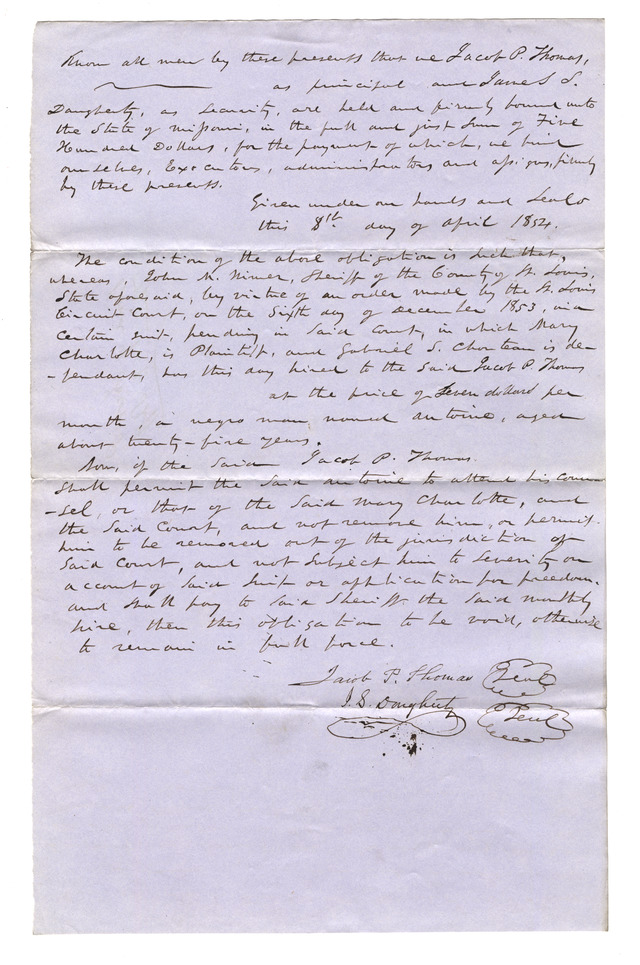 Know all men by these presents that we Jacob P. Thomas,
as principal and James S.
Daugherty, as Security, are held and firmly bound unto
the State of Missouri, in the full and just Sum of Five
Hundred Dollars, for the payment of which, we bind
ourselves, Executors, administrators and assigns, firmly
by these presents.
Given under our hands and Seals
this 8th. day of April 1854.
The condition of the above obligation is such that,
whereas, John M. Wimer, Sheriff of the County of St. Louis,
State aforesaid, by virtue of an order made by the St. Louis
Circuit Court, on the Sixth day of December 1853, in a
certain suit, pending in Said Court, in which Mary
Charlotte, is Plaintiff, and Gabriel S. Chouteau is de-
-fendant, has this day hired to the Said Jacob P. Thomas
at the price of Seven dollars per
month, a negro man, named Antoine, aged
about twenty-five years.
Now, if the Said Jacob P. Thomas
Shall permit the Said Antoine to attend his coun-
-sel, or that of the Said Mary Charlotte, and
the Said Court, and not remove him, or permit
him to be removed out of the jurisdiction of
Said Court, and not Subject him to Severity on
account of Said Suit or application for freedom.
and Shall pay to Said Sheriff the Said monthly
hire, then this obligation to be void, otherwise
to remain in full force.
Jacob P. Thomas Seal
J. S. Dougherty Seal